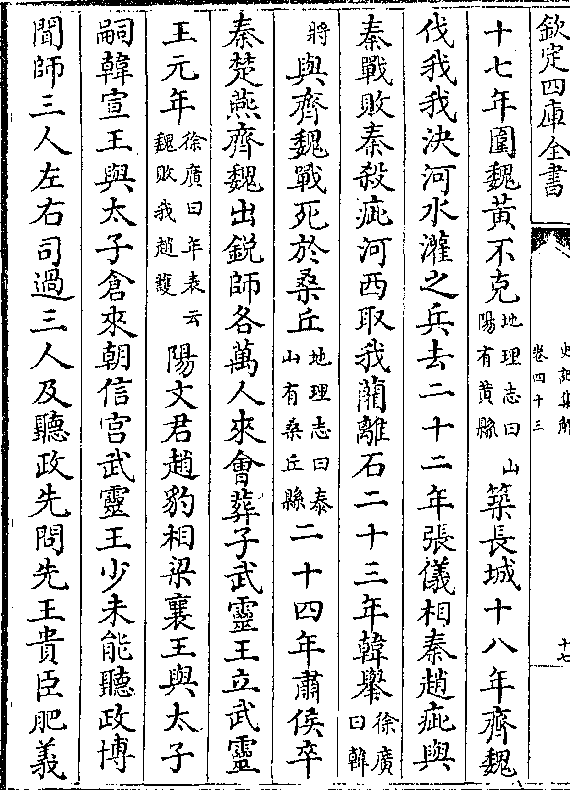 欽定四庫全書
史記集解
卷四十三
十七
十七年圍魏黃不克地理志曰山陽有黃縣築長城十八年齊魏
伐我我決河水灌之兵去二十二年張儀相秦趙疵與
秦戰敗秦殺疵河西取我藺離石二十三年韓舉徐廣曰韓
將與齊魏戰死於桑丘地理志曰泰山有桑丘縣二十四年肅侯卒
秦楚燕齊魏出鋭師各萬人來會葬子武靈王立武靈
王元年徐廣曰年表云魏敗我趙護陽文君趙豹相梁襄王與太子
嗣韓宣王與太子倉來朝信宫武靈王少未能聽政博
聞師三人左右司過三人及聽政先問先王貴臣肥義